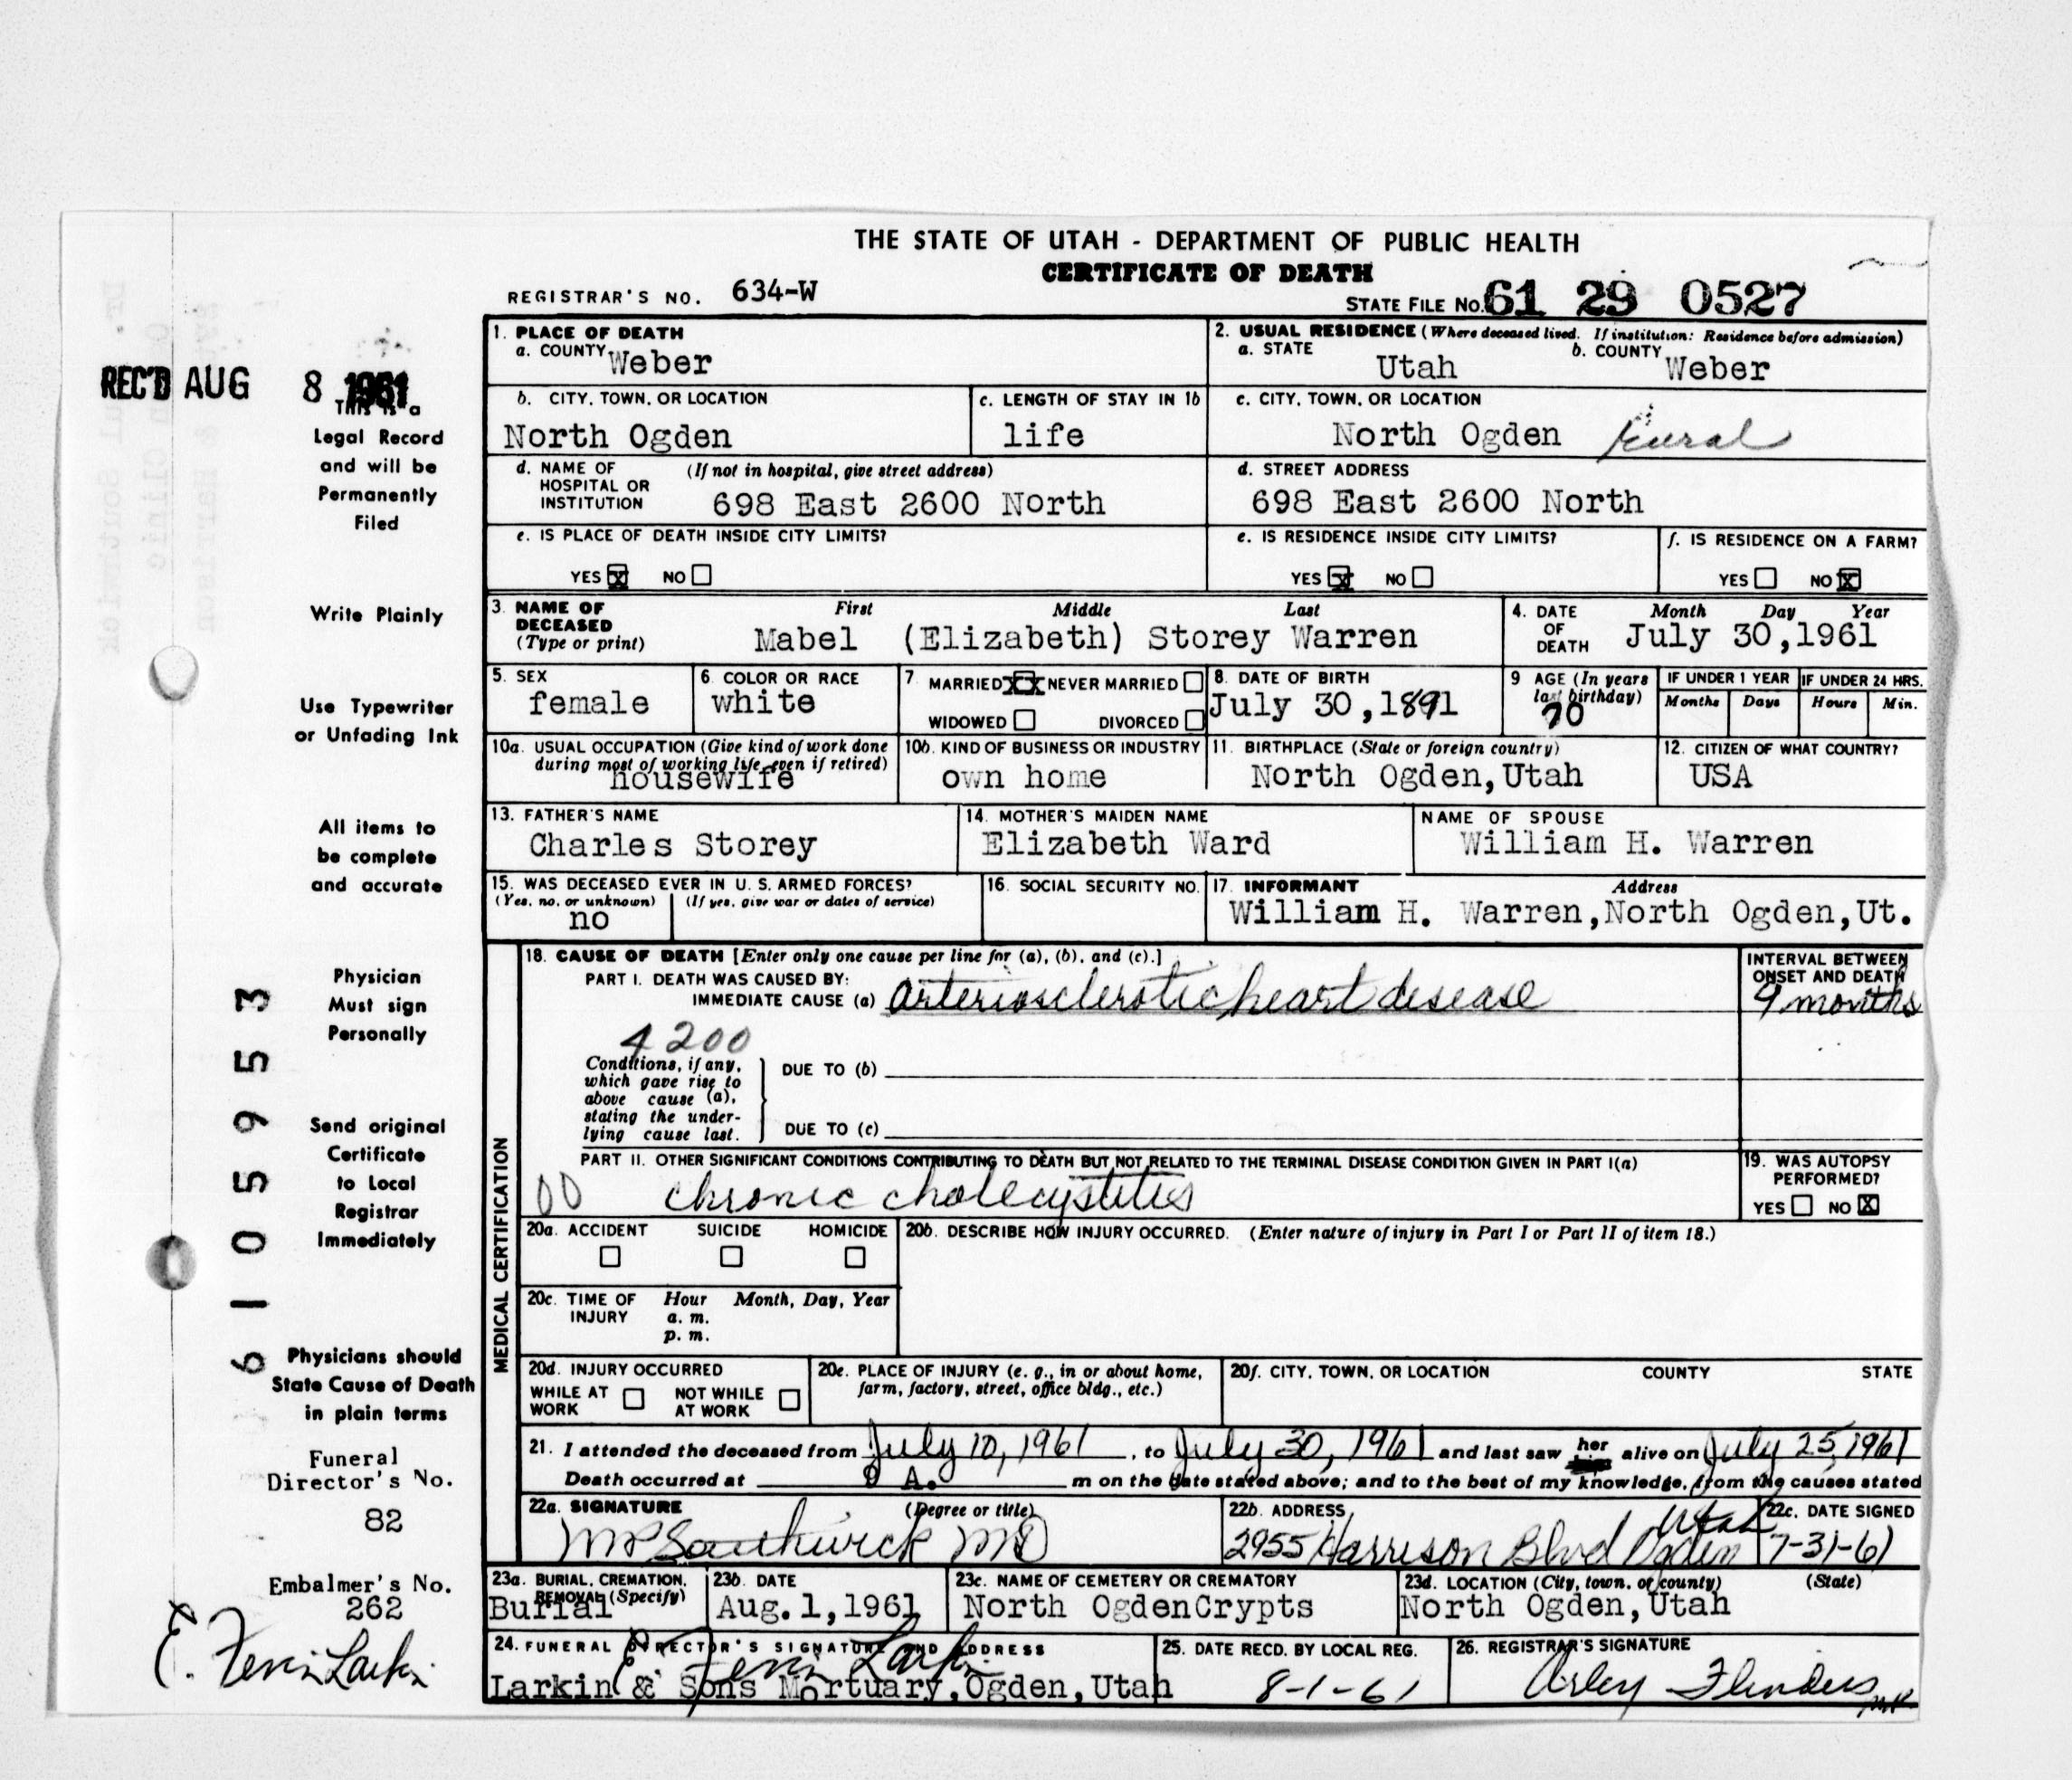 THE STATE OF UTAH - DEPARTMENT OF PUBLIC HEALTH
CERTIFICATE OF DEATH
REGISTRAR'S NO. 634-W
STATE FILE NO. 61 29 0527
REC'D AUG 8 1961
This is a
Legal Record
and will be
Permanently
Filed
Write Plainly
Use Typewriter
or Unfading Ink
All items to
be complete
and accurate
Physician
Must sign
Personally
Send original
Certificate
to Local
Registrar
Immediately
Physicians should
State Cause of Death
in plain terms
Funeral
Director's No.
82
Embalmer's No.
262
E. Fenin Larkin
61059953
1. PLACE OF DEATH
a. COUNTY Weber
2. USUAL RESIDENCE (Where deceased lived. If institution: Residence before admission)
a. STATE Utah b. COUNTY Weber
b. CITY, TOWN, OR LOCATION
North Ogden
c. LENGTH OF STAY IN 1b
life
c. CITY, TOWN, OR LOCATION
North Ogden Rural
d. NAME OF HOSPITAL OR INSTITUTION (If not in hospital, give street address)
698 East 2600 North
d. STREET ADDRESS
698 East 2600 North
e. IS PLACE OF DEATH INSIDE CITY LIMITS?
YES X NO
e. IS RESIDENCE INSIDE CITY LIMITS?
YES X NO
f. IS RESIDENCE ON A FARM?
YES NO X
3. NAME OF DECEASED (Type or print)
First Middle Last
Mabel (Elizabeth) Storey Warren
4. DATE OF DEATH Month Day Year
July 30,1961
5. SEX
female
6. COLOR OR RACE
white
7. MARRIED XX NEVER MARRIED
WIDOWED DIVORCED
8. DATE OF BIRTH
July 30,1891
9 AGE (In years last birthday)
70
IF UNDER 1 YEAR IF UNDER 24 HRS.
Months Days Hours Min.
10a. USUAL OCCUPATION (Give kind of work done during most of working life, even if retired)
housewife
10b. KIND OF BUSINESS OR INDUSTRY
own home
11. BIRTHPLACE (State or foreign country)
North Ogden,Utah
12. CITIZEN OF WHAT COUNTRY?
USA
13. FATHER'S NAME
Charles Storey
14. MOTHER'S MAIDEN NAME
Elizabeth Ward
NAME OF SPOUSE
William H. Warren
15. WAS DECEASED EVER IN U. S. ARMED FORCES?
(Yes, no, or unknown) (If yes, give war or dates of service)
no
16. SOCIAL SECURITY NO.
17. INFORMANT Address
William H. Warren,North Ogden,Ut.
MEDICAL CERTIFICATION
18. CAUSE OF DEATH [Enter only one cause per line for (a), (b), and (c).]
PART I. DEATH WAS CAUSED BY:
IMMEDIATE CAUSE (a) arteriosclerotic heart desease
INTERVAL BETWEEN ONSET AND DEATH
9 months
4200
Conditions, if any, which gave rise to above cause (a), stating the underlying cause last.
DUE TO (b)
DUE TO (c)
PART II. OTHER SIGNIFICANT CONDITIONS CONTRIBUTING TO DEATH BUT NOT RELATED TO THE TERMINAL DISEASE CONDITION GIVEN IN PART I(a)
00 chronic cholecystitis
19. WAS AUTOPSY PERFORMED?
YES NO X
20a. ACCIDENT SUICIDE HOMICIDE
20b. DESCRIBE HOW INJURY OCCURRED. (Enter nature of injury in Part I or Part II of item 18.)
20c. TIME OF INJURY Hour Month, Day, Year
a. m.
p. m.
20d. INJURY OCCURRED
WHILE AT WORK NOT WHILE AT WORK
20e. PLACE OF INJURY (e. g., in or about home, farm, factory, street, office bldg., etc.)
20f. CITY, TOWN, OR LOCATION COUNTY STATE
21. I attended the deceased from July 10, 1961, to July 30, 1961 and last saw her alive on July 25, 1961
Death occurred at A. m on the date stated above; and to the best of my knowledge, from the causes stated
22a. SIGNATURE (Degree or title)
MP Southwick MD
22b. ADDRESS
2955 Harrison Blvd Ogden Utah
22c. DATE SIGNED
7-31-61
23a. BURIAL, CREMATION, REMOVAL (Specify)
Burial
23b. DATE
Aug.1,1961
23c. NAME OF CEMETERY OR CREMATORY
North OgdenCrypts
23d. LOCATION (City, town, or county) (State)
North Ogden,Utah
24. FUNERAL DIRECTOR'S SIGNATURE AND ADDRESS
E. Fenin Larkin
Larkin & Sons Mortuary,Ogden,Utah
25. DATE RECD. BY LOCAL REG.
8-1-61
26. REGISTRAR'S SIGNATURE
Arley Flinders